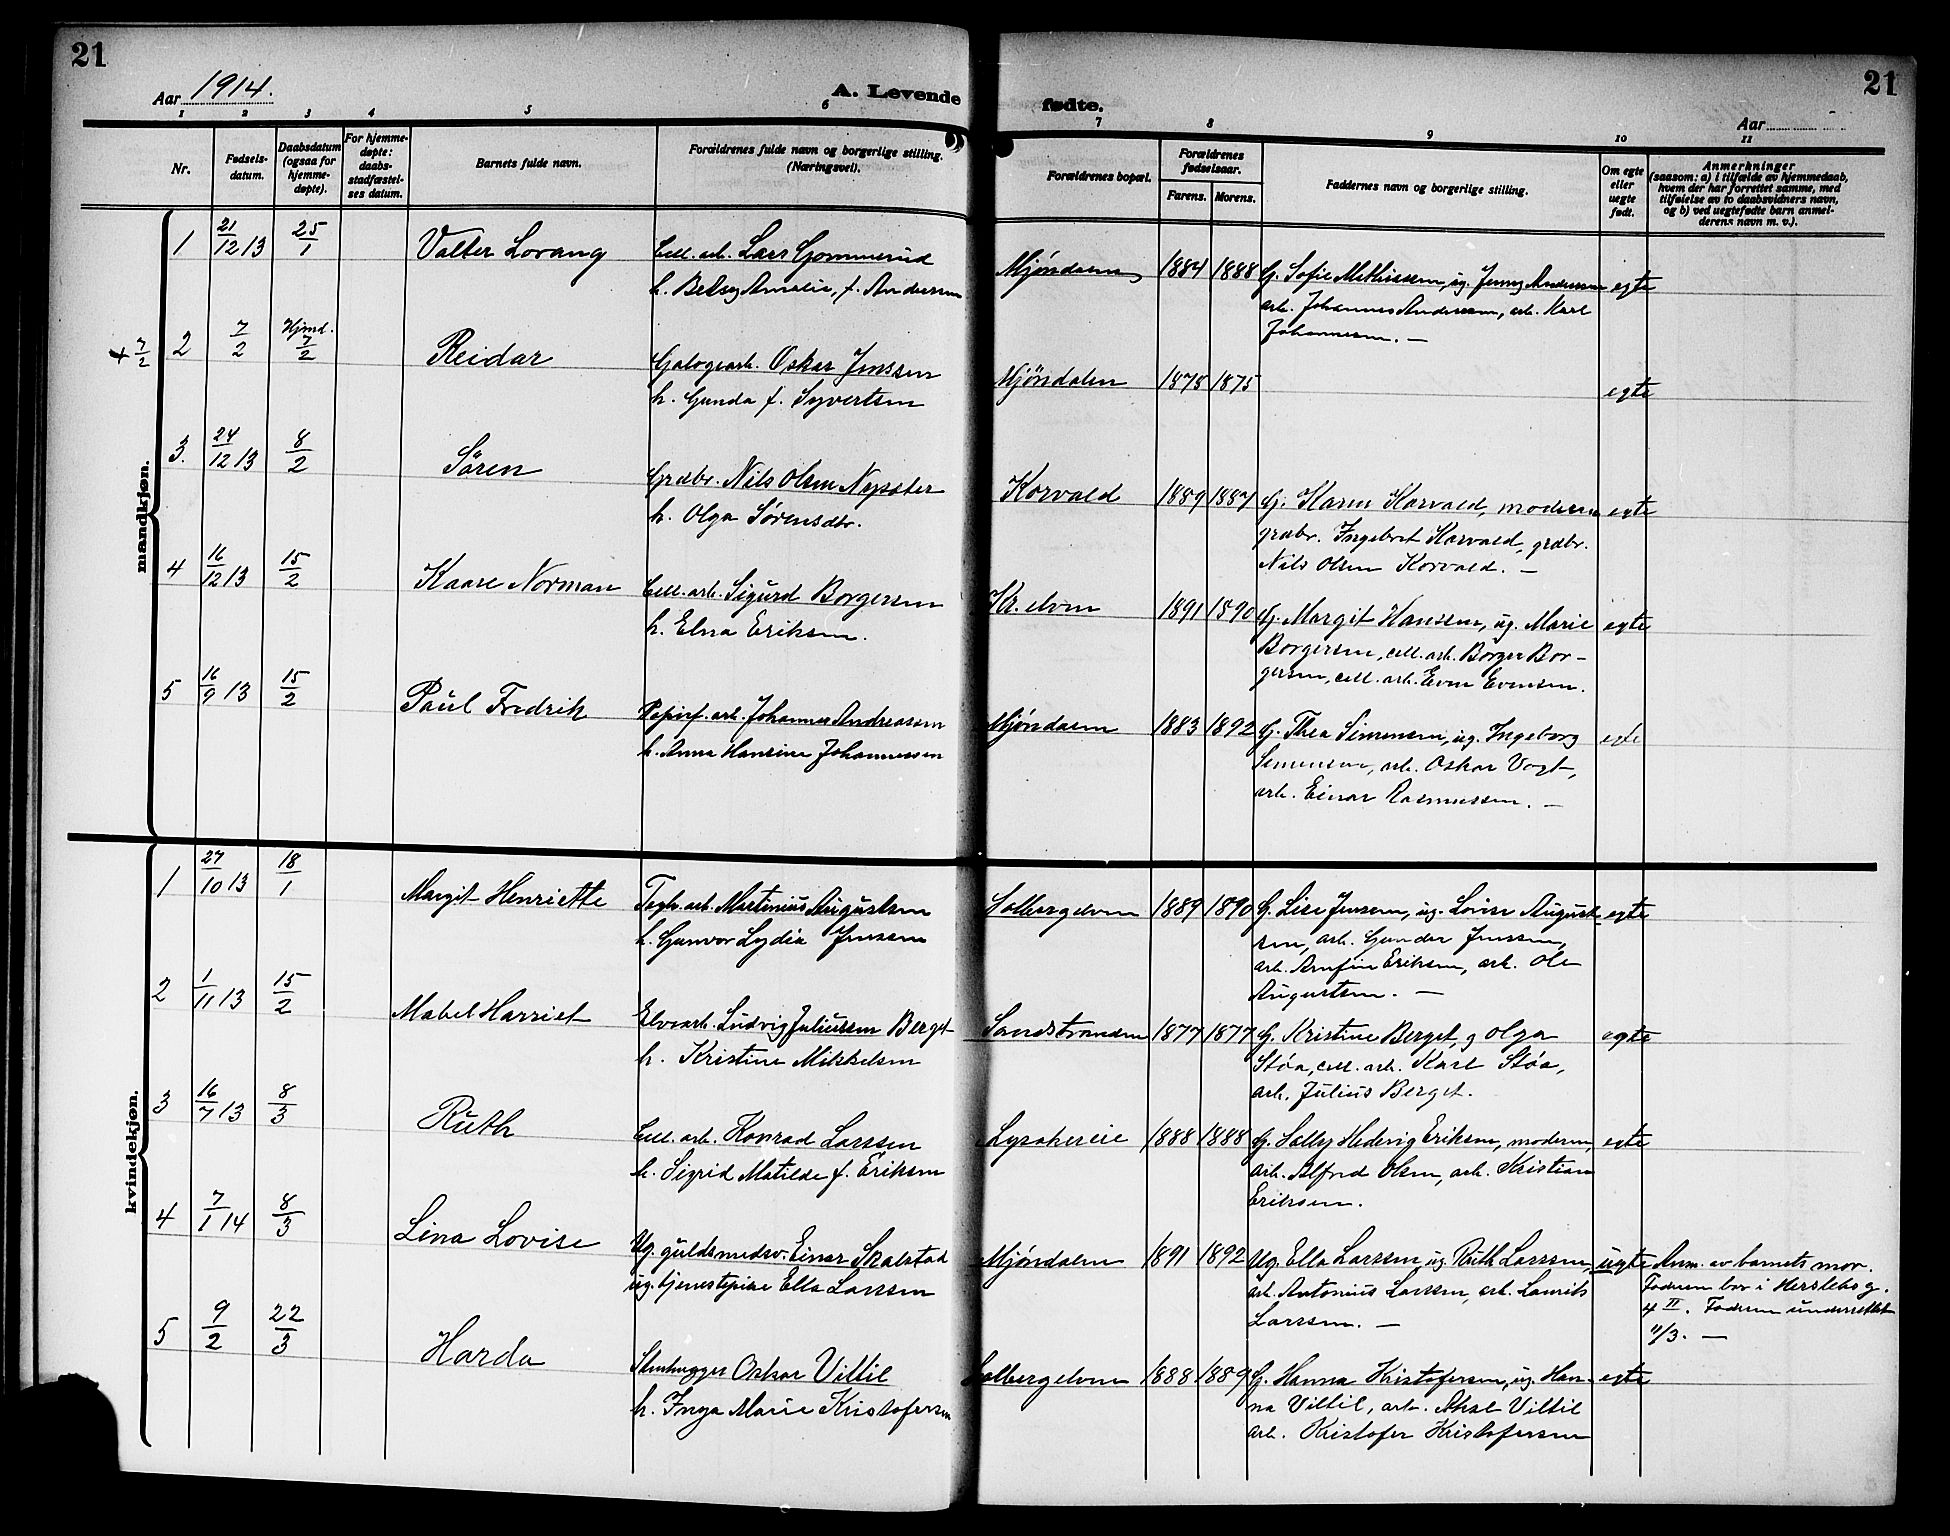 21
21
Aar 1914.
A. Levende
fødte.
Aar
1 2 3 4 5 6
7 8 9 10 11
Nr.
Fødsels-
datum.
Daabsdatum
(ogsaa for
hjemme-
døpte).
For hjemme-
døpte:
daabs-
stadfæstel-
ses datum.
Barnets fulde navn.
Forældrenes fulde navn og borgerlige stilling.
(Næringsvei).
Forældrenes bopæl.
Forældrenes
fødselsaar.
Farens. Morens.
Faddernes navn og borgerlige stilling.
Om egte
eller
uegte
født.
Anmerkninger
(saasom: a) i tilfælde av hjemmedaab,
hvem der har forrettet samme, med
tilføielse av to daabsvidners navn,
og b) ved uegtefødte barn anmel-
derens navn m. v.).
mandkjøn.
1 21/12 13 25/1 Valter Lovang Cell. arb. Lars Gommerud
h. Betsy Amalie, f. Andersen
Mjøndalen 1884 1888 G. Sofie Mathissen, ug. Jenny Andersen egte
arb. Johannes Andersen, arb. Karl
Johannesen. —
+ 7/2 2 7/2 Hjmd. 7/2 Reidar Galogearb. Oskar Jenssen
h. Gunda f. Syvertsen
Mjöndalen 1878 1875 egte
3. 24/12 13 8/2 Sören Grdbr. Nils Olsen
h. Olga Sørensdtr.
Korvald 1889 1887 G. Karen Korvald, moderen egte
grdbr. Ingebret Korvald, grdbr.
Nils Olsen Korvald. —
4 16/12 13 15/2 Kaare Norman Cell. arb. Sigurd Borgersen
h. Elna Eriksen.
Kr. elven 1891 1890 G. Margit Hanssen, ug. Marie egte
Borgersen, cell. arb. Börger Bor-
gersen, cell. arb. Even Evensen.
5 16/9 13 15/2 Paul Fredrik Papirf. arb. Johannes Andreassen
h. Anna Hansine Johannessen
Mjøndalen 1883 1892 G. Thea Simensen, ug. Ingeborg egte
Simensen, arb. Oskar Vogt,
arb. Einar Rasmussen. —
kvindekjøn.
1 27/10 13 18/1 Margit Henriette Teglv. arb. Martinius Augustsen
h. Gunvor Lydia Jenssen
Solbergelven 1889 1890 G. Lise Jenssen, ug. Lovise August- egte
sen, arb. Gunder Jenssen,
arb. Arnfin Eriksen, arb. Ole
Augustsen. —
2 1/11 13 15/2 Mabel Harriet Elvearb. Ludvig Juliussen Berget
h. Kristine Mikkelsen
Sandstranden 1877 1877 G. Kristine Berget, g. Olga egte
Støa, cell. arb. Karl Støa,
arb. Julius Berget.
3 16/7 13 8/3 Ruth Cell. arb. Konrad Larssen
h. Sigrid Matilde f. Eriksen
Lysakereie 1888 1888 G. Solly Hedevig Eriksen, moderen, egte
arb. Alfred Olsen, arb. Kristian
Eriksen.
4 7/1 14 8/3 Lina Lovise Ug. guldsmedsv. Einar Skalstad
ug. tjenestepike Ella Larssen
Mjöndalen 1891 1892 Ug. Ella Larssen, ug. Ruth Larssen, uegte Anm. av barnets mor.
arb. Antonius Larssen, arb. Laurits Faderen bor i Herslebs g.
Larssen. — 4 II. Faderen underrettet
11/3. —
5 9/2 22/3 Harda Stenhugger Oskar Viltil
h. Inga Marie Kristofersen
Solbergelven 1888 1889 G. Hanna Kristofersen, ug. Han- egte
na Viltil, arb. Aksel Viltil
arb. Kristofer Kristofersen